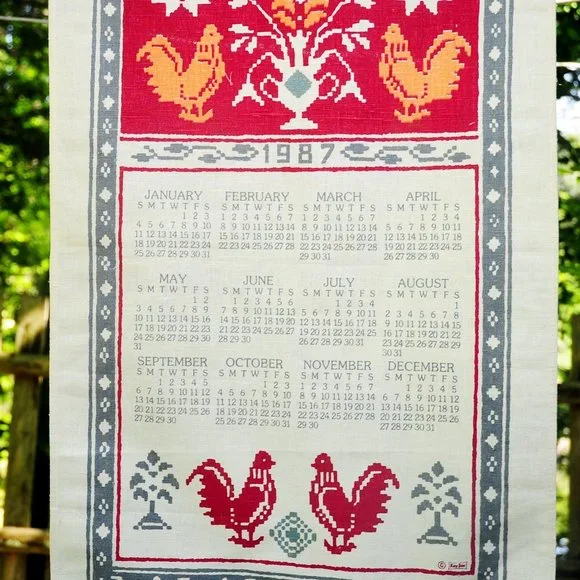 1987
JANUARY
S M T W T F S
1 2 3
4 5 6 7 8 9 10
11 12 13 14 15 16 17
18 19 20 21 22 23 24
25 26 27 28 29 30 31
FEBRUARY
S M T W T F S
1 2 3 4 5 6 7
8 9 10 11 12 13 14
15 16 17 18 19 20 21
22 23 24 25 26 27 28
MARCH
S M T W T F S
1 2 3 4 5 6 7
8 9 10 11 12 13 14
15 16 17 18 19 20 21
22 23 24 25 26 27 28
29 30 31
APRIL
S M T W T F S
1 2 3 4
5 6 7 8 9 10 11
12 13 14 15 16 17 18
19 20 21 22 23 24 25
26 27 28 29 30
MAY
S M T W T F S
1 2
3 4 5 6 7 8 9
10 11 12 13 14 15 16
17 18 19 20 21 22 23
24 25 26 27 28 29 30
31
JUNE
S M T W T F S
1 2 3 4 5 6
7 8 9 10 11 12 13
14 15 16 17 18 19 20
21 22 23 24 25 26 27
28 29 30
JULY
S M T W T F S
1 2 3 4
5 6 7 8 9 10 11
12 13 14 15 16 17 18
19 20 21 22 23 24 25
26 27 28 29 30 31
AUGUST
S M T W T F S
1
2 3 4 5 6 7 8
9 10 11 12 13 14 15
16 17 18 19 20 21 22
23 24 25 26 27 28 29
30 31
SEPTEMBER
S M T W T F S
1 2 3 4 5
6 7 8 9 10 11 12
13 14 15 16 17 18 19
20 21 22 23 24 25 26
27 28 29 30
OCTOBER
S M T W T F S
1 2 3
4 5 6 7 8 9 10
11 12 13 14 15 16 17
18 19 20 21 22 23 24
25 26 27 28 29 30 31
NOVEMBER
S M T W T F S
1 2 3 4 5 6 7
8 9 10 11 12 13 14
15 16 17 18 19 20 21
22 23 24 25 26 27 28
29 30
DECEMBER
S M T W T F S
1 2 3 4 5
6 7 8 9 10 11 12
13 14 15 16 17 18 19
20 21 22 23 24 25 26
27 28 29 30 31
© Kay Dee